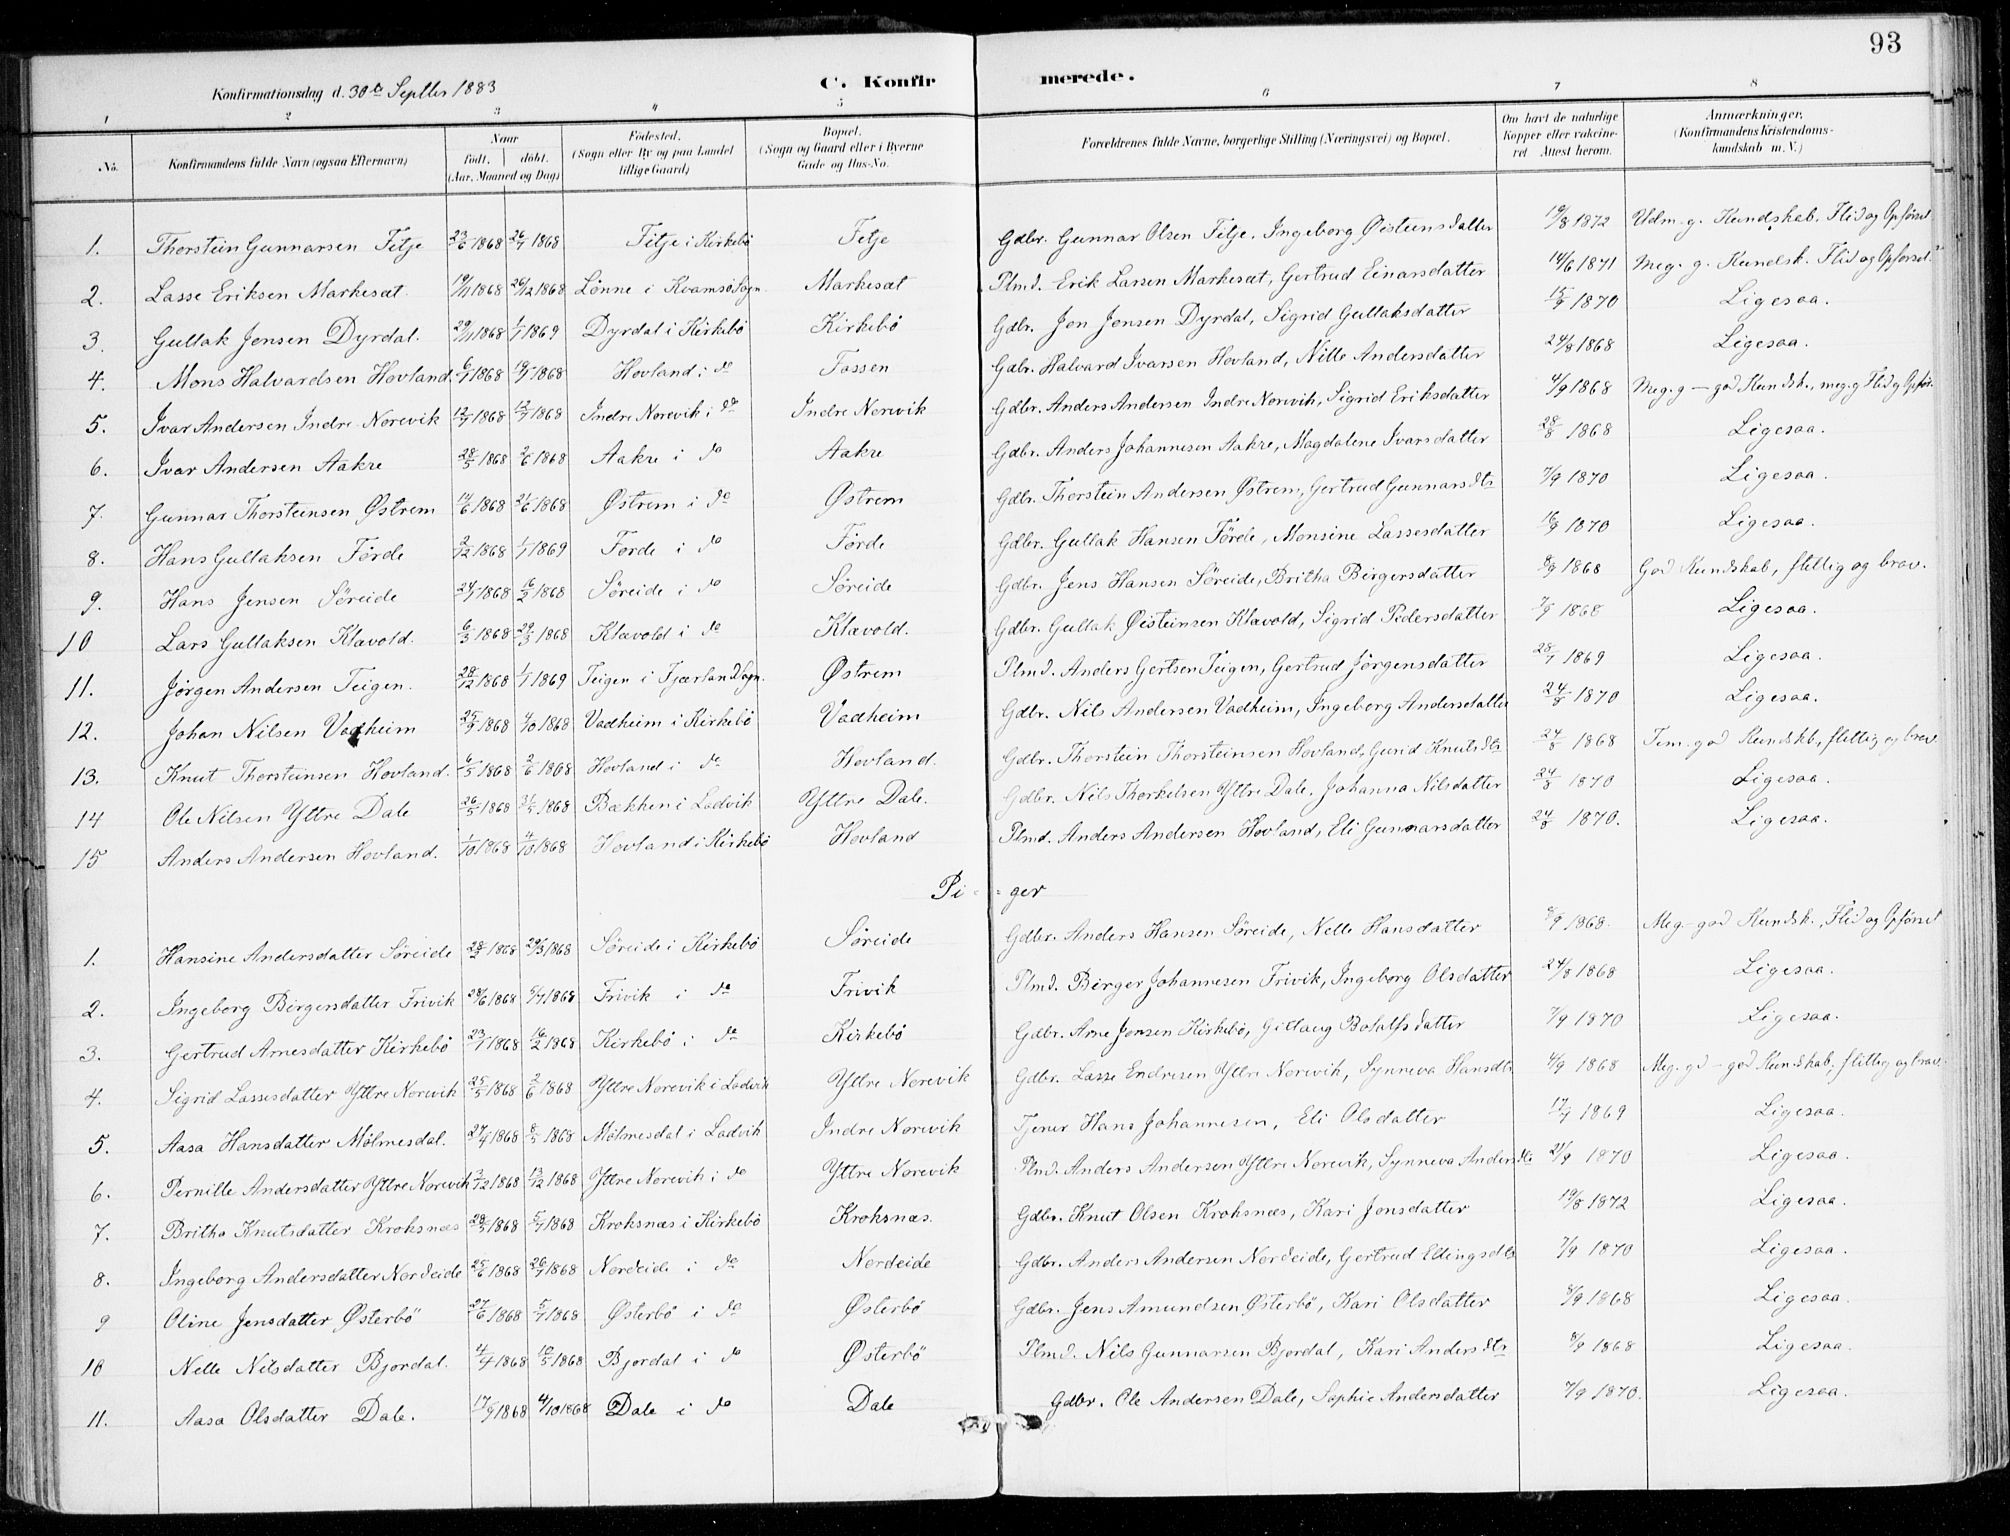 93
Konfirmationsdag d. 30te Septbr 1883 C. Konfirmerede.
1 2 3 4 5 6 7 8
No. Konfirmandens fulde Navn (ogsaa Efternavn) Naar født. døbt. (Aar, Maaned og Dag) Fødested. (Sogn eller By og paa Landet tillige Gaard) Bopæl. (Sogn og Gaard eller i Byerne Gade og Hus-No. Forældrenes fulde Navne, borgerlige Stilling (Næringsvei) og Bopæl. Om havt de naturlige Kopper eller vakcineret Attest herom. Anmærkninger. (Konfirmandens Kristendomskundskab m. V.)
1. Thorstein Gunnarsen Fitje 23/6 1868 26/7 1868 Fitje i Kirkebö Fitje Gdbr. Gunnar Olsen Fitje. Ingeborg Øisteinsdatter 19/8 1872 Udm. g. Kundskab. Flid og Opförsel
2. Lasse Eriksen Markesæt. 19/11 1868 26/12 1868 Lønne i Kvamsö Sogn. Markesæt Plmd. Erik Larsen Markesæt, Gertrud Einarsdatter 14/6 1871 Meg. g. Kundsk. Flid og Opförsel.
3. Gullak Jensen Dyrdal. 29/11 1868 1/1 1869 Dyrdal i Kirkebö Kirkebö Gdbr. Jon Jensen Dyrdal, Sigrid Gullaksdatter 15/9 1870 Ligesaa.
4. Mons Halvardsen Hovland. 6/7 1868 19/7 1868 Hovland i do Tossen Gdbr. Halvard Ivarsen Hovland, Nille Andersdatter 24/8 1868 Ligesaa.
5. Ivar Andersen Indre Norevik 12/7 1868 12/7 1868 Indre Norevik i do Indre Norevik Gdbr. Anders Andersen Indre Norevik, Sigrid Eriksdatter 4/9 1868 Meg. g – god Kundsk., meg. g Flid og Opför.
6. Ivar Andersen Aakre 28/5 1868 2/6 1868 Aakre i do Aakre Gdbr. Anders Johannesen Aakre, Magdalene Ivarsdatter 28/8 1868 Ligesaa.
7. Gunnar Thorsteinsen Østrem 14/6 1868 21/6 1868 Østrem i do Østrem Gdbr. Thorstein Andersen Østrem, Gertrud Gunnarsdtr 7/9 1870 Ligesaa.
8. Hans Gullaksen Förde 2/12 1868 1/1 1869 Förde i do Förde Gdbr. Gullak Hansen Förde, Monsine Lassesdatter 16/9 1870 Ligesaa.
9. Hans Jensen Söreide 24/1 1868 16/2 1868 Söreide i do Söreide Gdbr. Jens Hansen Söreide, Britha Birgersdatter 8/9 1868 God Kundskab, flittig og brav.
10 Lars Gullaksen Klævold. 6/3 1868 29/3 1868 Klævold i do Klævold. Gdbr. Gullak Øisteinsen Klævold, Sigrid Pedersdatter 7/9 1868 Ligesaa.
11. Jörgen Andersen Teigen. 28/12 1868 1/1 1869 Teigen i Fjærland Sogn. Østrem Plmd. Anders Gertsen Teigen, Gertrud Jörgensdatter 28/7 1869 Ligesaa.
12. Johan Nilsen Vadheim 25/9 1868 4/10 1868 Vadheim i Kirkebö Vadheim Gdbr. Nils Andersen Vadheim, Ingeborg Andersdatter 24/8 1870 Ligesaa.
13. Knut Thorsteinsen Hovland. 6/5 1868 2/6 1868 Hovland i do Hovland. Gdbr. Thorstein Thorsteinsen Hovland, Gurid Knutsdtr 24/8 1868 Tem. god Kundskb, flittig og brav
14 Ole Nilsen Yttre Dale 26/5 1868 31/5 1868 Bækken i Ladvik Yttre Dale. Gdbr. Nils Thorkelsen Yttre Dale. Johanna Nilsdatter 24/8 1870 Ligesaa.
15 Anders Andersen Hovland. 1/10 1868 4/10 1868 Hovland i Kirkebö Hovland Plmd. Anders Andersen Hovland, Eli Gunnarsdatter 24/8 1870. Ligesaa.
Pi-ger
1. Hansine Andersdatter Söreide 28/2 1868 29/3 1868 Söreide i Kirkebö Söreide Gdbr. Anders Hansen Söreide, Nelle Hansdatter 8/9 1868. Meg. god Kundsk., Flid og Opförsel
2. Ingeborg Birgersdatter Frivik 28/6 1868 5/7 1868 Frivik i do Frivik Plmd. Birger Johannesen Frivik, Ingeborg Olsdatter 24/8 1868 Ligesaa.
3. Gertrud Arnesdatter Kirkebö 23/1 1868 16/2 1868 Kirkebö i do Kirkebö Gdbr. Arne Jensen Kirkebö, Gitlaug Botolfsdatter 7/9 1870 Ligesaa.
4. Sigrid Lassesdatter Yttre Norevik 25/5 1868 2/6 1868 Yttre Norevik i Ladvik Yttre Norevik Gdbr. Lasse Endresen Yttre Norevik, Synneva Hansdtr 4/9 1868 Meg. gd – god Kundskab, flittig og brav.
5. Aasa Hansdatter Mölmesdal. 27/4 1868 8/5 1868 Mölmesdal i Ladvik Indre Norevik Tjener Hans Johannesen, Eli Olsdatter 17/9 1869 Ligesaa.
6. Pernille Andersdatter Yttre Norevik 3/12 1868 13/12 1868 Yttre Norevik i do Yttre Norevik Plmd. Anders Andersen Yttre Norevik, Synneva Andersdtr 21/9 1870 Ligesaa.
7. Britha Knutsdatter Kroksnæs 28/5 1868 5/7 1868 Kroksnæs i Kirkebö Kroksnæs. Gdbr. Knut Olsen Kroksnæs, Kari Jonsdatter 19/8 1872 Ligesaa.
8. Ingeborg Andersdatter Nordeide 25/6 1868 26/7 1868 Nordeide i do Nordeide Gdbr. Anders Andersen Nordeide, Gertrud Ellingsdtr 7/9 1870 Ligesaa.
9 Oline Jensdatter Østerbö 27/6 1868 5/7 1868 Østerbö i do Østerbö Gdbr. Jens Amundsen Østerbö, Kari Olsdatter 8/9 1868 Ligesaa.
10 Nelle Nilsdatter Bjordal. 4/4 1868 10/5 1868 Bjordal i do Østerbö Plmd. Nils Gunnarsen Bjordal, Kari Andersdtr 8/9 1868 Ligesaa.
11. Aasa Olsdatter Dale. 17/9 1868 4/10 1868 Dale i do Dale Gdbr. Ole Andersen Dale, Sophie Andersdatter 7/9 1870. Ligesaa.